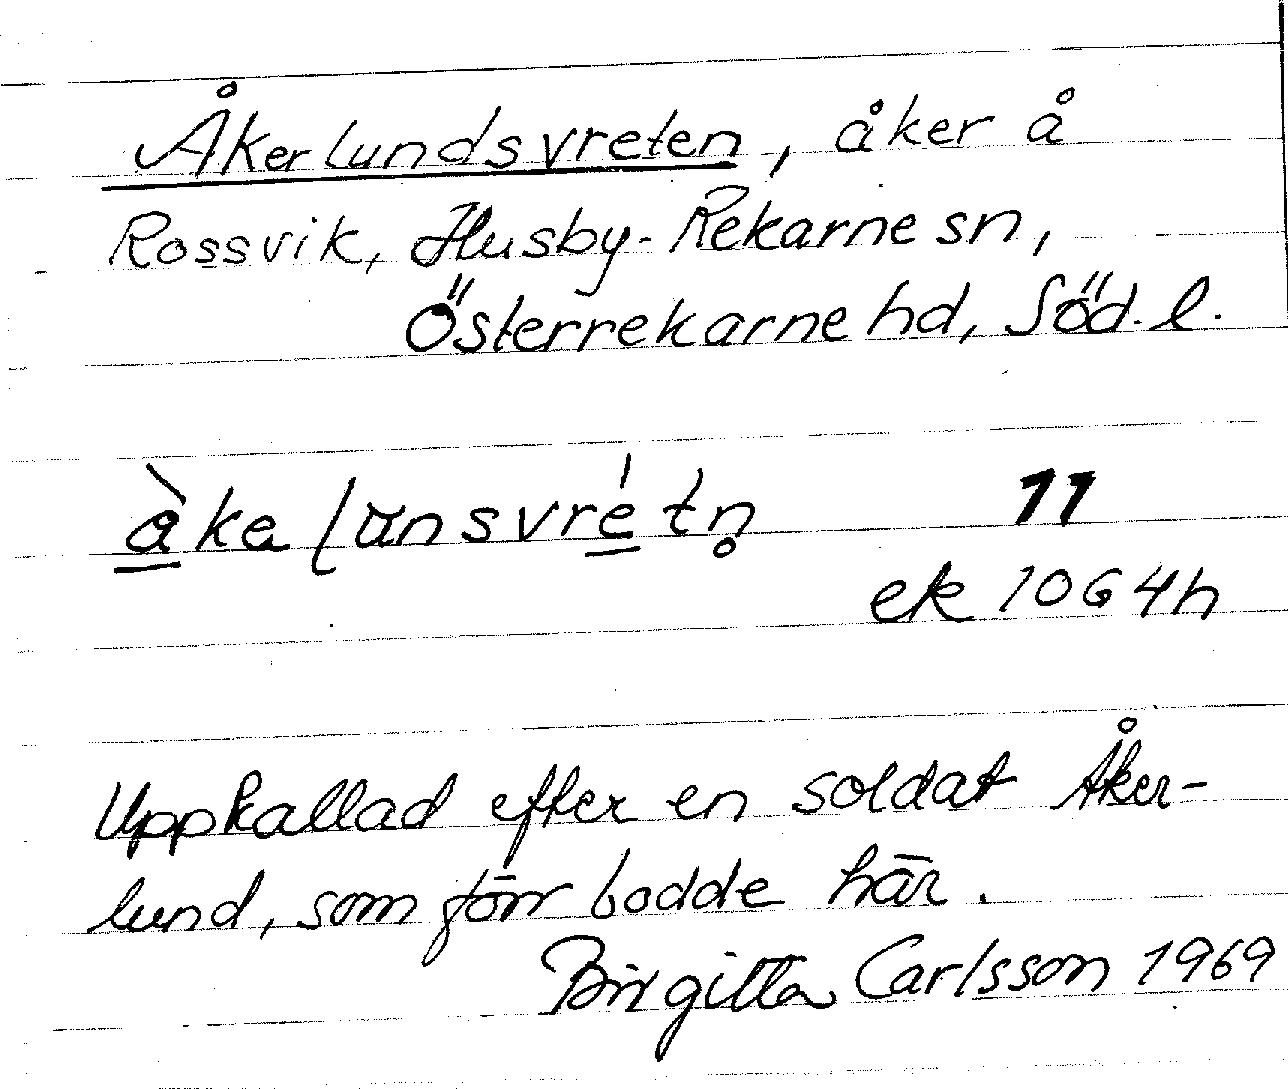 Åkerlundsvreten, åker å
Rossvik, Husby-Rekarne sn,
Österrekarne hd, Söd. l.
àkeꞭunsvrétn̥ 11
ek 10G4h
Uppkallad efter en soldat Åker-
lund, som förr bodde här.
Birgitta Carlsson 1969